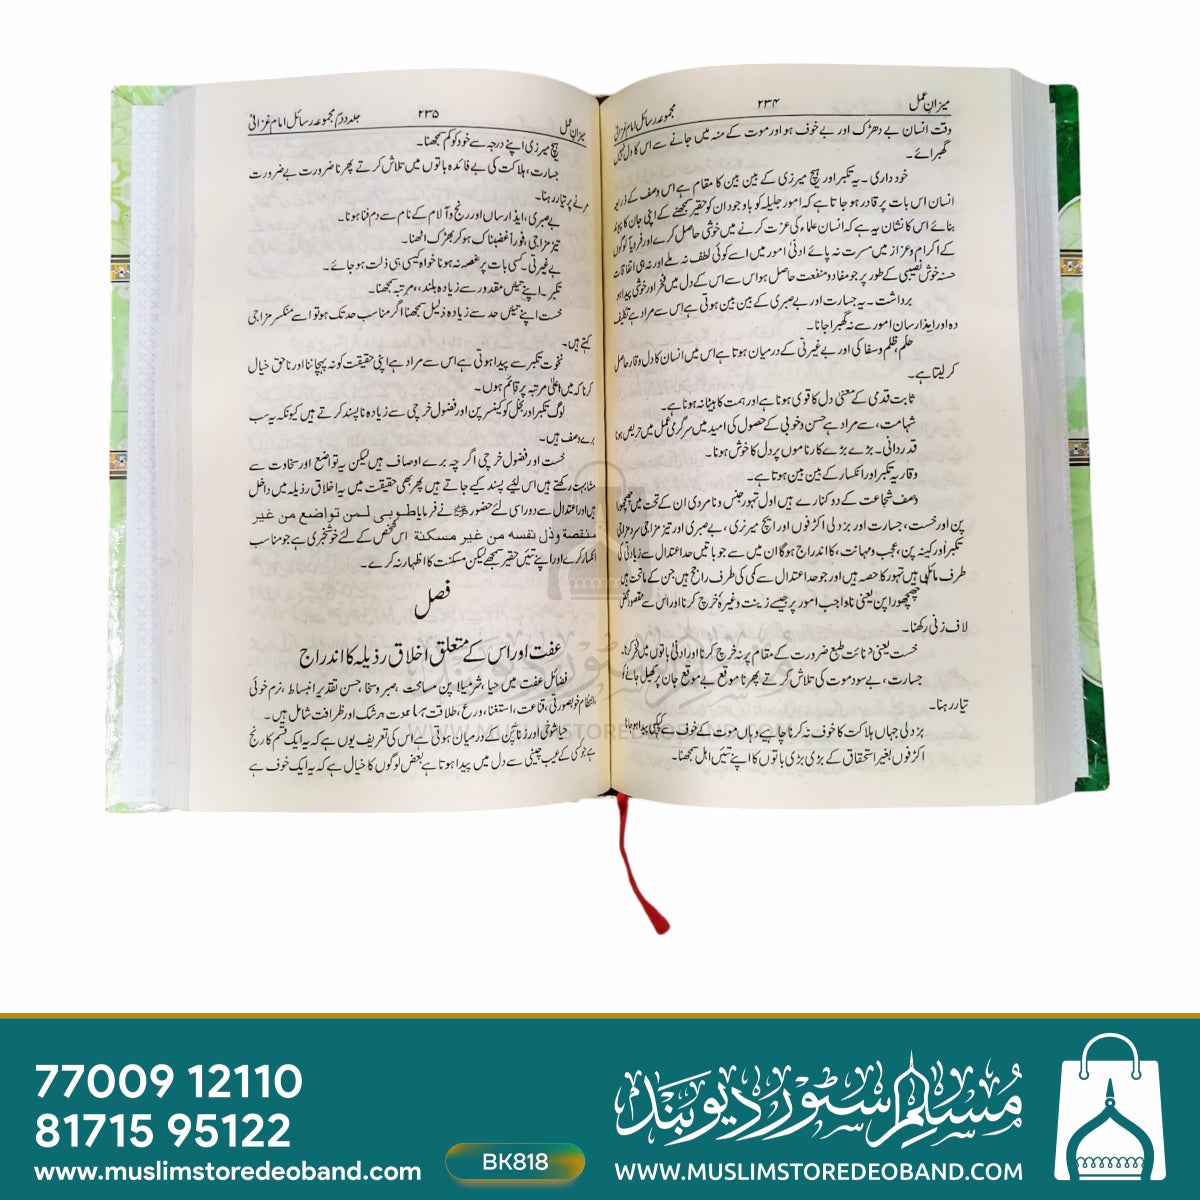 میزان عمل ۲۳۴ مجموعہ رسائل امام غزالیؒ
وقت انسان بے دھڑک اور بے خوف ہو اور موت کے منہ میں جانے سے اس کا دل نہیں
گھبرائے۔
خود داری۔ یہ تکبر اور ہیچ میرزی کے بین بین کا مقام ہے اس وصف کے ذریعہ
انسان اس بات پر قادر ہو جاتا ہے کہ امور جلیلہ کو باوجود ان کو حقیر سمجھنے کے اپنی جان کا
بنائے اس کا نشان یہ ہے کہ انسان علماء کی عزت کرنے میں خوشی حاصل کرے اور فرومایہ لوگوں
کے اکرام و عزاز میں مسرت نہ پائے ادنیٰ امور میں اسے کوئی لطف نہ ملے اور نہ ہی اتفاقات
حسنہ خوش نصیبی کے طور پر جو مفاد و منفعت حاصل ہو اس سے اس کے دل میں فخر اور خوشی پیدا ہو
برداشت۔ یہ جسارت اور بے صبری کے بین بین ہوتی ہے اس سے مراد ہے تکلیف
دہ اور ایذا رسان امور سے نہ گھبرا جانا۔
حلم، ظلم و سفاکی اور بے غیرتی کے درمیان ہوتا ہے اس میں انسان کا دل وقار حاصل
کر لیتا ہے۔
ثابت قدمی کے معنی دل کا قوی ہونا ہے اور ہمت کا بیٹانہ ہونا ہے۔
شہامت، سے مراد ہے حسن و خوبی کے حصول کی امید میں سرگرمی عمل میں حریص ہونا
قدردانی۔ بڑے بڑے کارناموں پر دل کا خوش ہونا۔
وقار یہ تکبر اور انکسار کے بین بین ہوتا ہے۔
وصف شجاعت کے دو کنارے ہیں اول تہور جبن و نامردی ان کے تحت میں چھچھورا
پن اور خست، جسارت اور بزدلی اکڑفوں اور ہیچ میرزی، بے صبری اور تیز مزاجی سرد مزاجی
تکبر اور کمینہ پن، عجب و مہانت، کا اندراج ہو گا ان میں سے جو باتیں حد اعتدال سے زیادتی کی
طرف مائل ہیں تہور کا حصہ ہیں اور جو حد اعتدال سے کمی کی طرف راجح ہیں جن کے ماتحت ہیں
چھچھورا پن یعنی ناواجب امور پر جیسے زینت وغیرہ کا خرچ کرنا اور اس سے مقصود محض
لاف زنی رکھنا۔
خست یعنی دنائت طبع ضرورت کے مقام پر نہ خرچ کرنا اور ادنیٰ باتوں میں فخر کرنا۔
جسارت، بے سود موت کی تلاش کرتے پھرنا موقع بے موقع جان پر کھیل جانے کو
تیار رہنا۔
بزدلی جہاں ہلاکت کا خوف نہ کرنا چاہیے وہاں موت کے خوف سے کپکپی پیدا ہو جانا
اکڑفوں بغیر استحقاق کے بڑی بڑی باتوں کا اپنے تئیں اہل سمجھنا۔
میزان عمل ۲۳۵ جلد دوم مجموعہ رسائل امام غزالیؒ
ہیچ میرزی اپنے درجہ سے خود کو کم سمجھنا۔
جسارت، ہلاکت کی بے فائدہ باتوں میں تلاش کرتے پھرنا ضرورت بے ضرورت
مرنے پر تیار رہنا۔
بے صبری، ایذا رساں اور رنج و آلام کے نام سے دم فنا ہونا۔
تیز مزاجی، فوراً غضبناک ہو کر بھڑک اٹھنا۔
بے غیرتی۔ کسی بات پر غصہ نہ ہونا خواہ کیسی ہی ذلت ہو جائے۔
تکبر۔ اپنے تئیں مقدور سے زیادہ بلند، مرتبہ سمجھنا۔
خست اپنے تئیں حد سے زیادہ ذلیل سمجھنا اگر مناسب حد تک ہو تو اسے منکسر مزاجی
کہتے ہیں۔
نخوت تکبر سے پیدا ہوتی ہے اس سے مراد ہے اپنی حقیقت کو نہ پہچاننا اور ناحق خیال
کرنا کہ میں اعلیٰ مرتبہ پر قائم ہوں۔
لوگ تکبر اور بخل کو کمینہ پن اور فضول خرچی سے زیادہ ناپسند کرتے ہیں کیونکہ یہ سب
برے وصف ہیں۔
خست اور فضول خرچی اگرچہ برے اوصاف ہیں لیکن یہ تواضع اور سخاوت سے
مشابہت رکھتے ہیں اس لیئے پسند کیے جاتے ہیں پھر بھی حقیقت میں یہ اخلاق رذیلہ میں داخل
ہیں اور اعتدال سے دور اسی لئے حضور ﷺ نے فرمایا طوبی لمن تواضع من غیر
منقصة وذل نفسه من غیر مسکنة اس شخص کے لئے خوشخبری ہے جو مناسب
انکسار کرے اور اپنے تئیں حقیر سمجھے لیکن مسکنت کا اظہار نہ کرے۔
فصل
عفت اور اس کے متعلق اخلاق رذیلہ کا اندراج
فضائل عفت میں حیا، شرمیلا پن مسامحت، صبر و سخا، حسن تقدیر انبساط، نرم خوئی
انتظام خوبصورتی، قناعت، استغنا، ورع، طلاقت مساعدت ہر شک اور ظرافت شامل ہیں۔
حیا شوخی اور زنانہ پن کے درمیان ہوتی ہے اس کی تعریف یوں ہے کہ یہ ایک قسم کا رنج
ہے جو کسی کے عیب چینی سے دل میں پیدا ہوتا ہے بعض لوگوں کا خیال ہے کہ یہ ایک خوف ہے
مسلم سٹور دیوبند
WWW.MUSLIMSTOREDEOBAND.COM
77009 12110
81715 95122
www.muslimstoredeoband.com
BK818
مسلم سٹور دیوبند
WWW.MUSLIMSTOREDEOBAND.COM